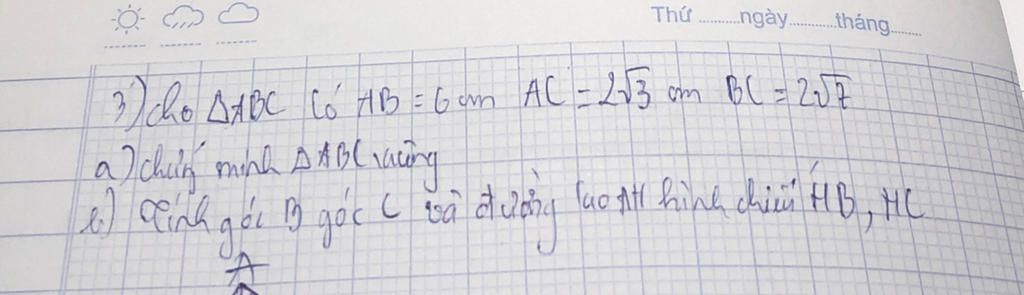 Thứ ........ngày.........tháng........
3) Cho ΔABC Có AB = 6 cm AC = 2√3 cm BC = 2√7
a) chứng minh ΔABC vuông
b) tính góc B góc C và đường cao AH hình chiếu HB, HC
A